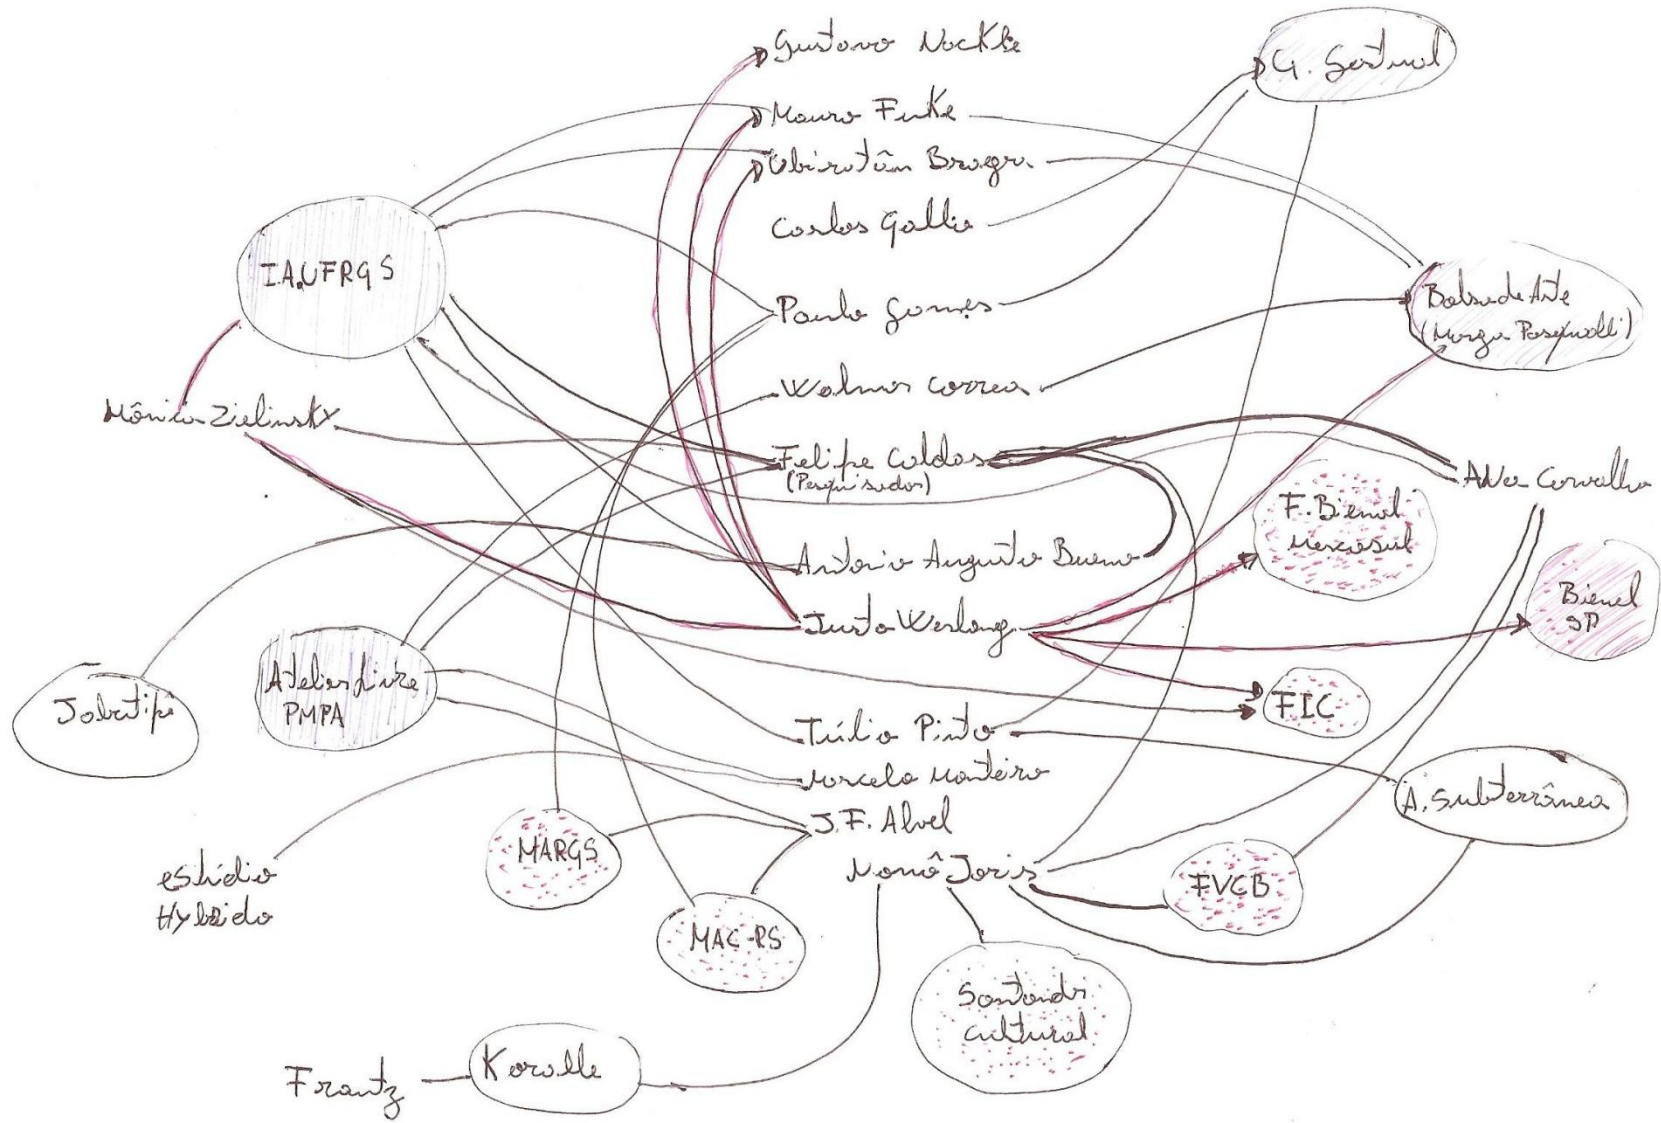 Gustavo Nackle
G. Gestual
Mauro Fuke
Ubiratãn Braga
Carlos Gallia
I.A.UFRGS
Paulo Gomes
Bolsa de Arte
(Marga Pasqualli)
Walmor Correa
Mônica Zielinsky
Felipe Caldas
(Pesquisador)
Ana Carvalho
F. Bienal
Mercosul
Antonio Augusto Bueno
Bienal
SP
Justo Werlang
Atelier Livre
PMPA
Jabutipê
FIC
Túlio Pinto
Marcelo Monteiro
A. Subterrânea
J.F. Alvel
MARGS
estúdio
Hybrido
Nonô Joris
FVCB
MAC-RS
Santander
Cultural
Koralle
Frantz